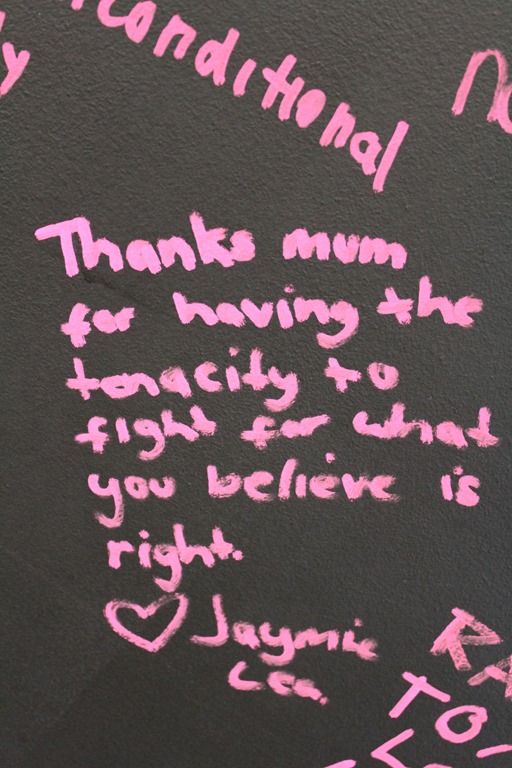 conditional
Thanks mum
for having the
tenacity to
fight for what
you believe is
right.
♡ Jaymie
Lea.
RA
TO